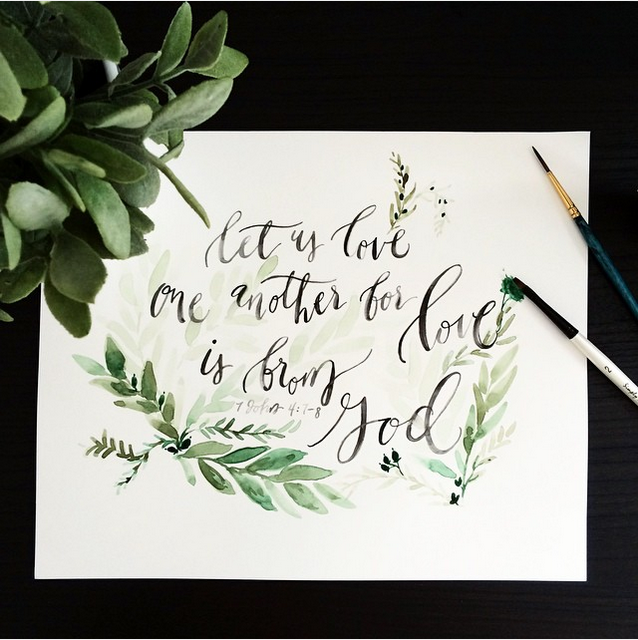 let us love
one another for love
is from
1 John 4:7-8
God
2